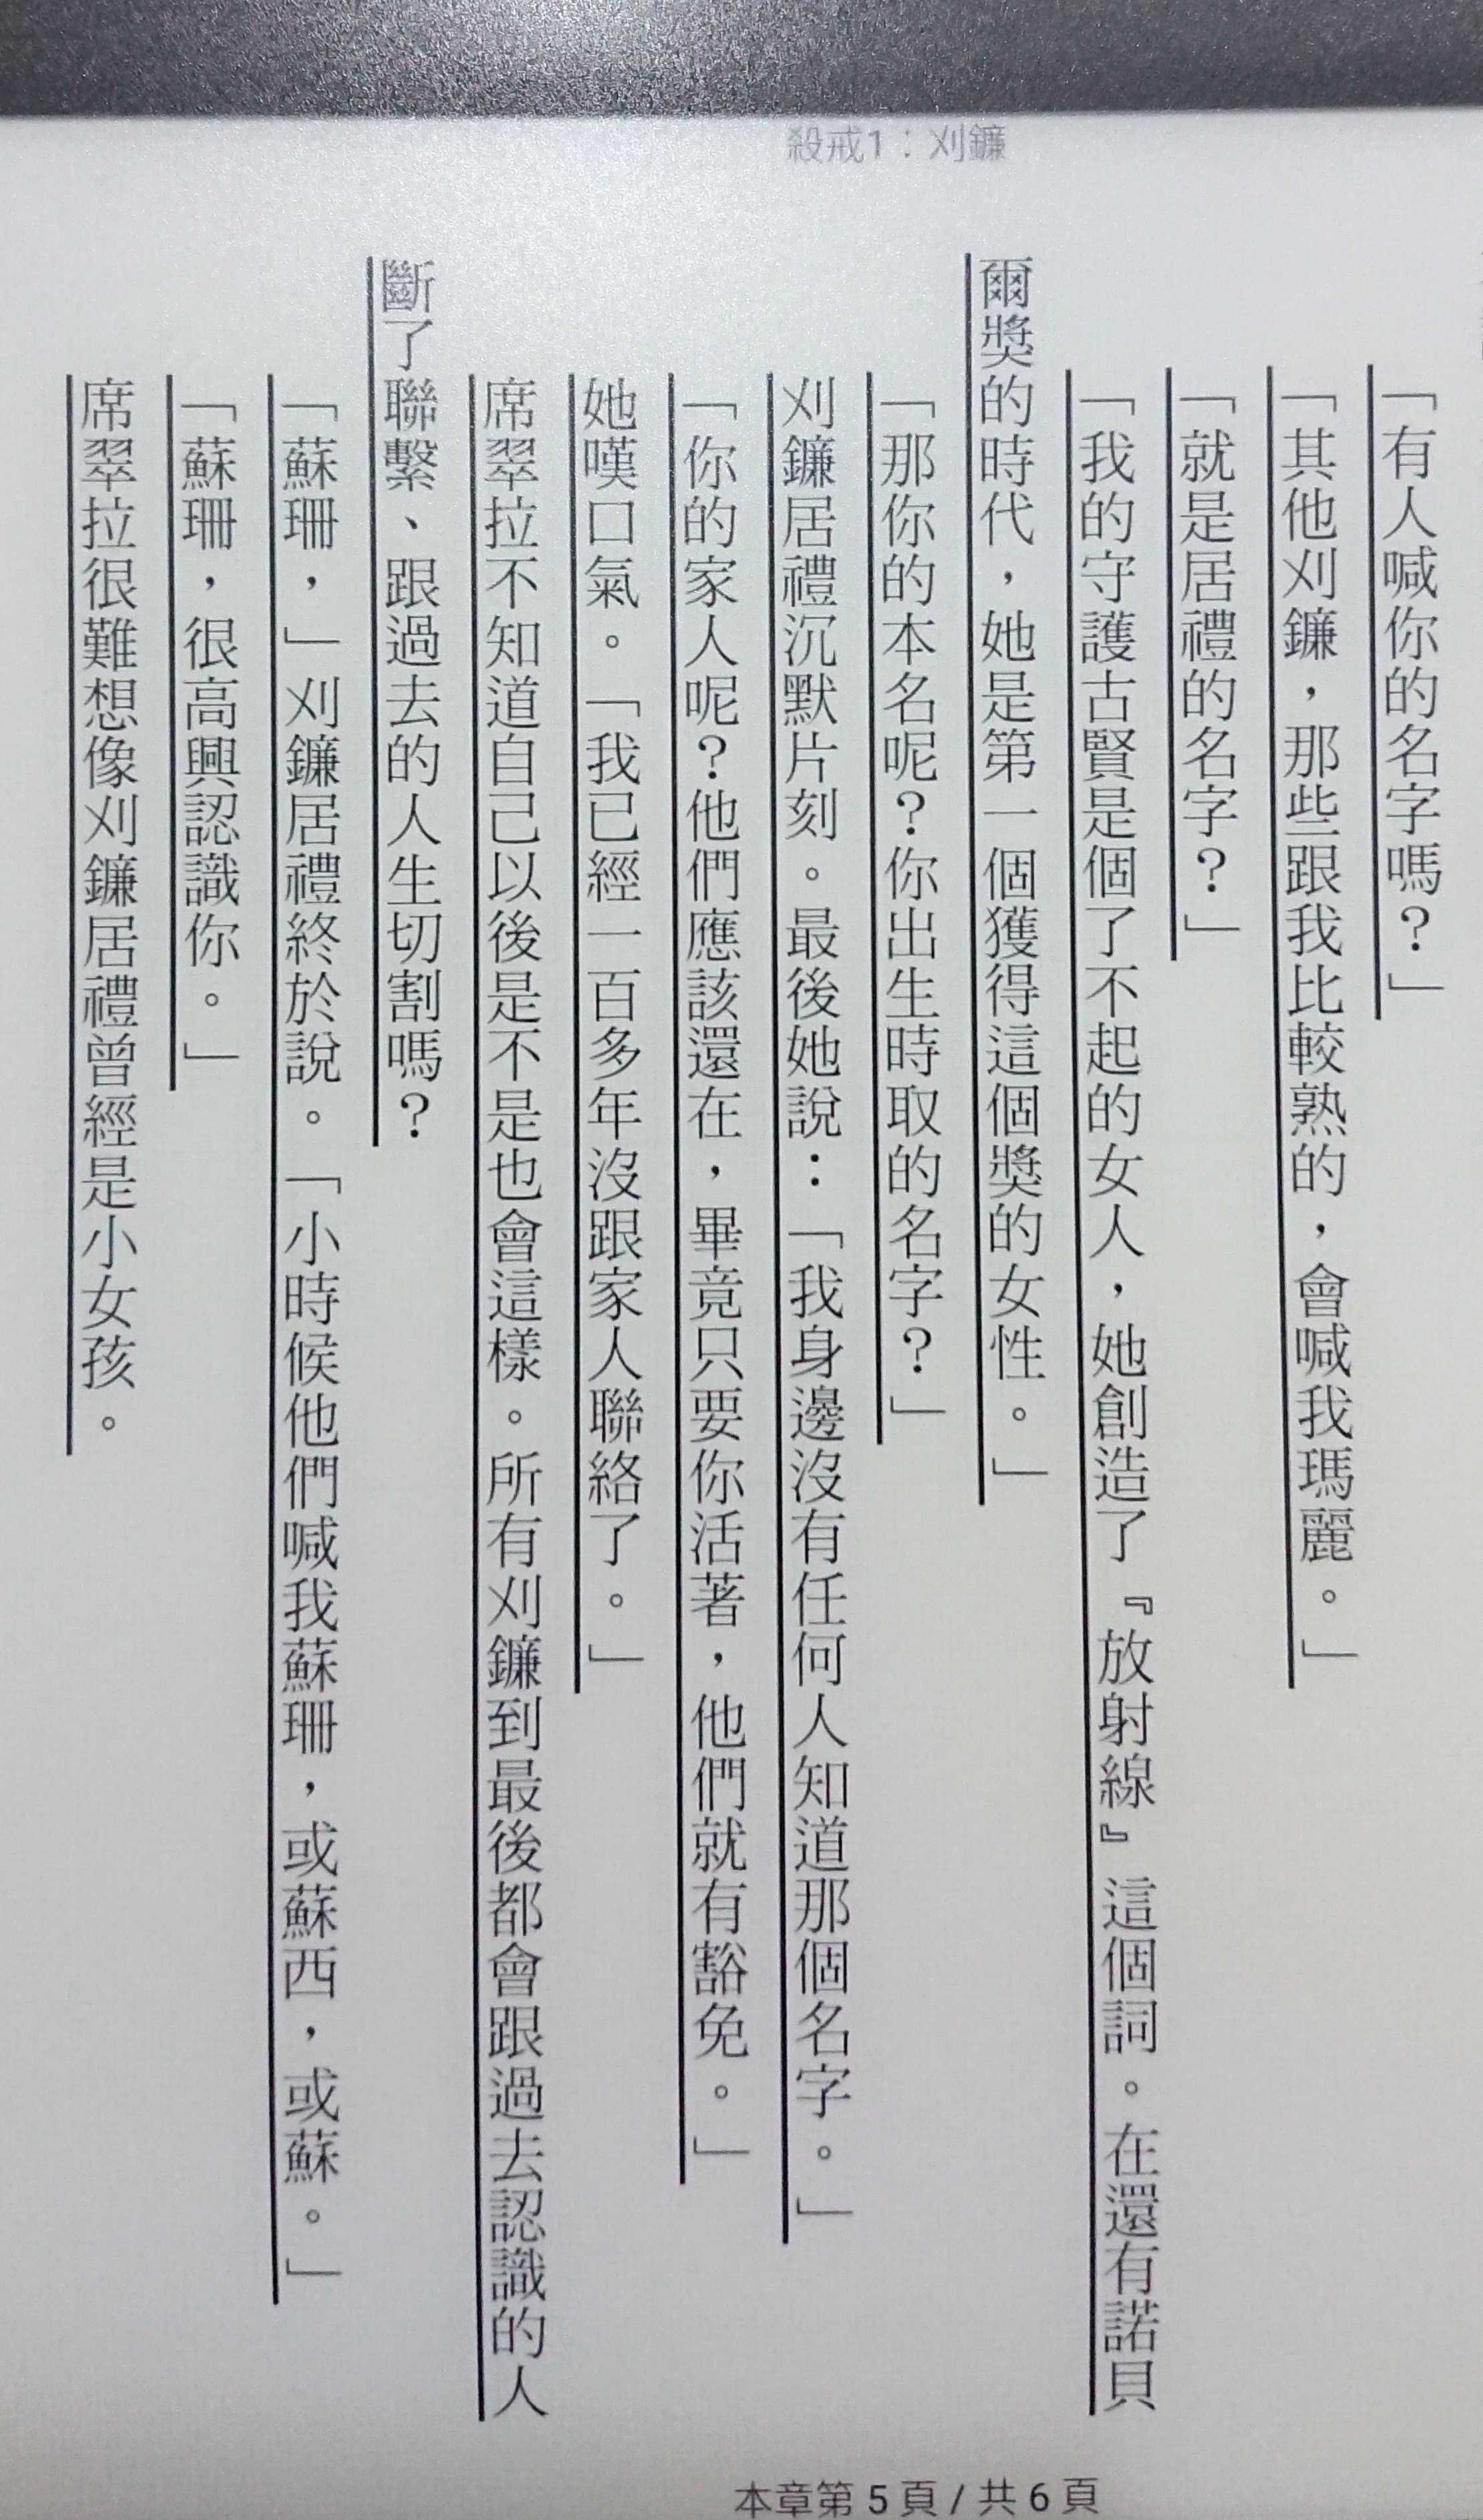 殺戒1：刈鐮
「有人喊你的名字嗎？」
「其他刈鐮，那些跟我比較熟的，會喊我瑪麗。」
「就是居禮的名字？」
「我的守護古賢是個了不起的女人，她創造了『放射線』這個詞。在還有諾貝
爾獎的時代，她是第一個獲得這個獎的女性。」
「那你的本名呢？你出生時取的名字？」
刈鐮居禮沉默片刻。最後她說：「我身邊沒有任何人知道那個名字。」
「你的家人呢？他們應該還在，畢竟只要你活著，他們就有豁免。」
她嘆口氣。「我已經一百多年沒跟家人聯絡了。」
席翠拉不知道自己以後是不是也會這樣。所有刈鐮到最後都會跟過去認識的人
斷了聯繫、跟過去的人生切割嗎？
「蘇珊，」刈鐮居禮終於說。「小時候他們喊我蘇珊，或蘇西，或蘇。」
「蘇珊，很高興認識你。」
席翠拉很難想像刈鐮居禮曾經是小女孩。
本章第 5 頁 / 共 6 頁